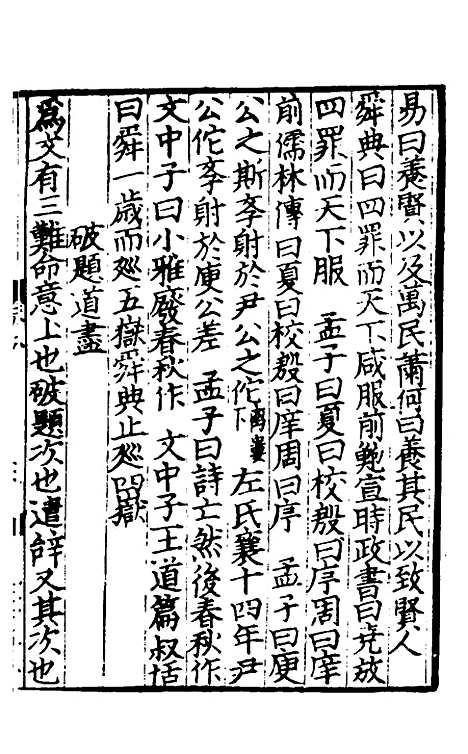 易曰養賢以及萬民蕭何曰養其民以致賢人
舜典曰四罪而天下咸服前鮑宣時政書曰堯放
四罪而天下服　孟子曰夏曰校殷曰序周曰庠
前儒林傳曰夏曰校殷曰庠周曰序　孟子曰庾
公之斯孥射於尹公之佗下離婁左氏襄十四年尹
公佗孥射於庾公差　孟子曰詩亡然後春秋作
文中子曰小雅廢春秋作　文中子王道篇叔恬
曰舜一歲而廵五嶽舜典止廵四嶽
破題道盡
為文有三難命意上也破題次也遣辭又其次也